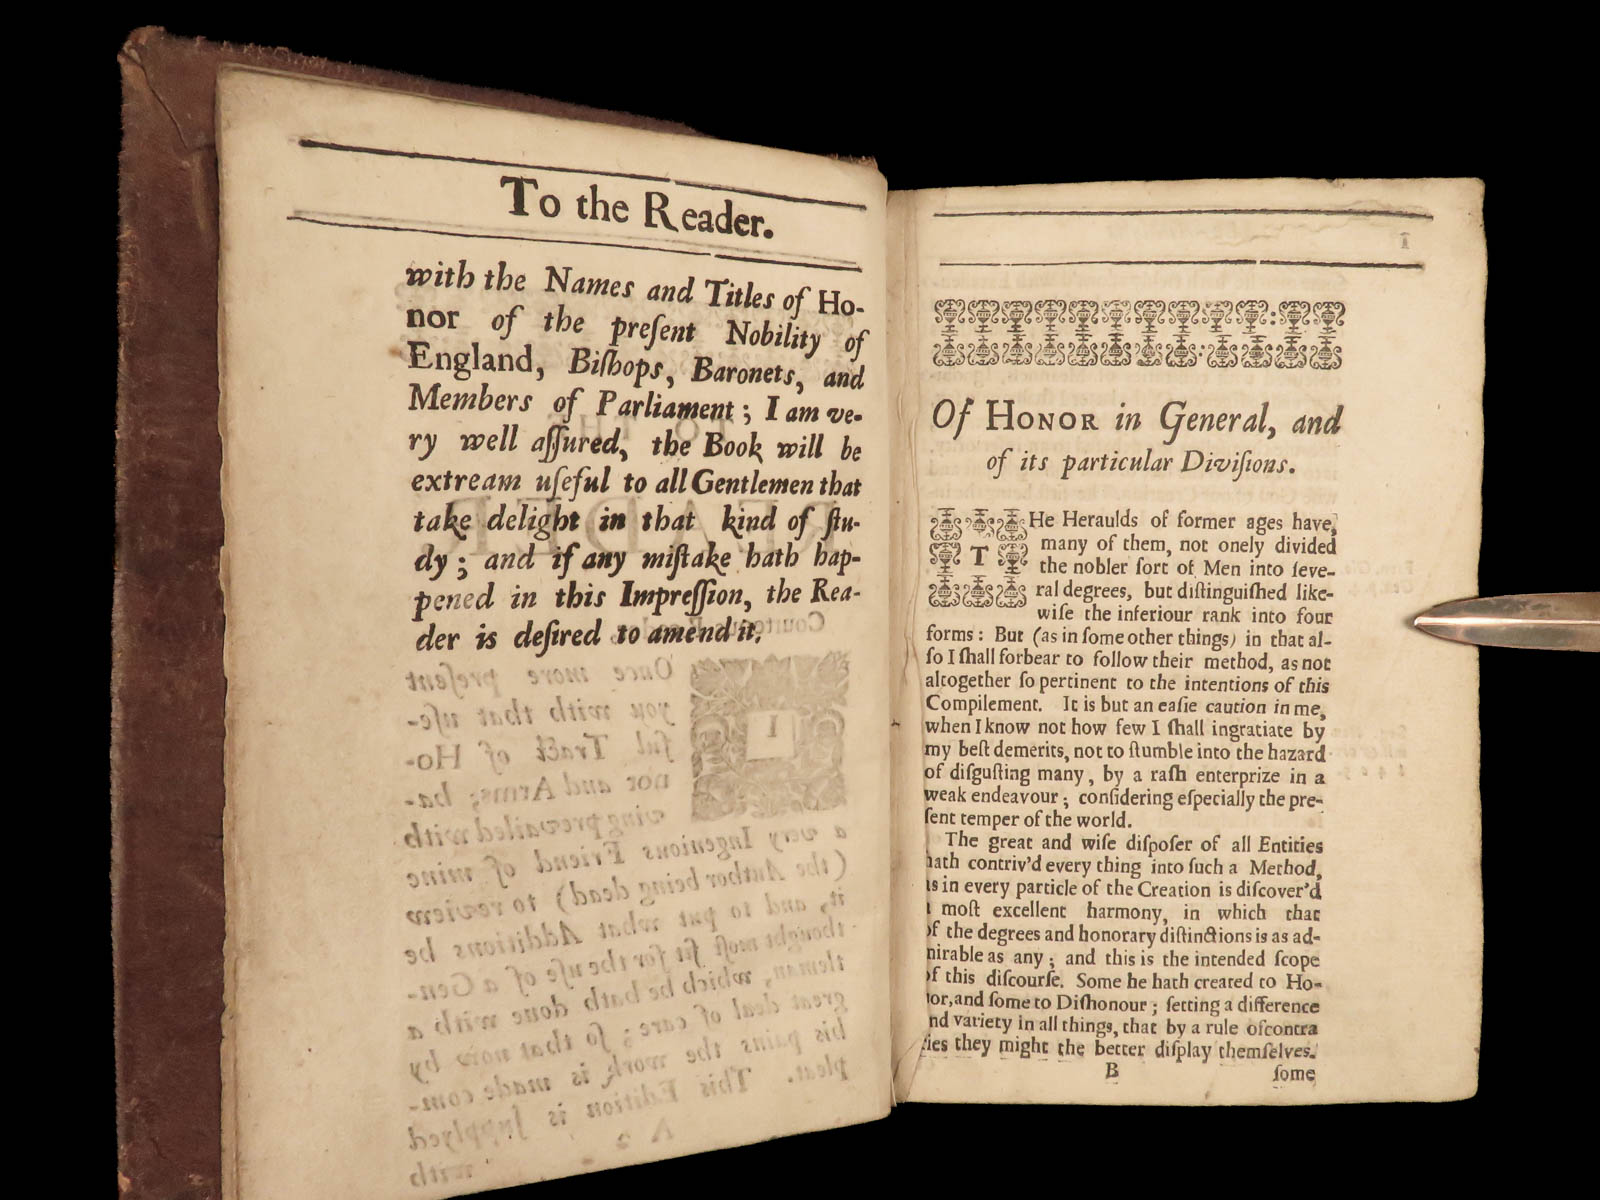 To the Reader.
with the Names and Titles of Ho-
nor of the preſent Nobility of
England, Biſhops, Baronets, and
Members of Parliament; I am ve-
ry well aſſured, the Book will be
extream uſeful to all Gentlemen that
take delight in that kind of ſtu-
dy; and if any miſtake hath hap-
pened in this Impreſſion, the Rea-
der is deſired to amend it.
1
Of HONOR in General, and
of its particular Diviſions.
THe Heraulds of former ages have,
many of them, not onely divided
the nobler ſort of Men into ſeve-
ral degrees, but diſtinguiſhed like-
wiſe the inferiour rank into four
forms: But (as in ſome other things) in that al-
ſo I ſhall forbear to follow their method, as not
altogether ſo pertinent to the intentions of this
Compilement. It is but an eaſie caution in me,
when I know not how few I ſhall ingratiate by
my beſt demerits, not to ſtumble into the hazard
of diſguſting many, by a raſh enterprize in a
weak endeavour; conſidering eſpecially the pre-
ſent temper of the world.
The great and wiſe diſpoſer of all Entities
hath contriv'd every thing into ſuch a Method,
as in every particle of the Creation is diſcover'd
a moſt excellent harmony, in which that
of the degrees and honorary diſtinctions is as ad-
mirable as any; and this is the intended ſcope
of this diſcourſe. Some he hath created to Ho-
nor, and ſome to Diſhonour; ſetting a difference
and variety in all things, that by a rule of contra
ries they might the better diſplay themſelves.
B ſome